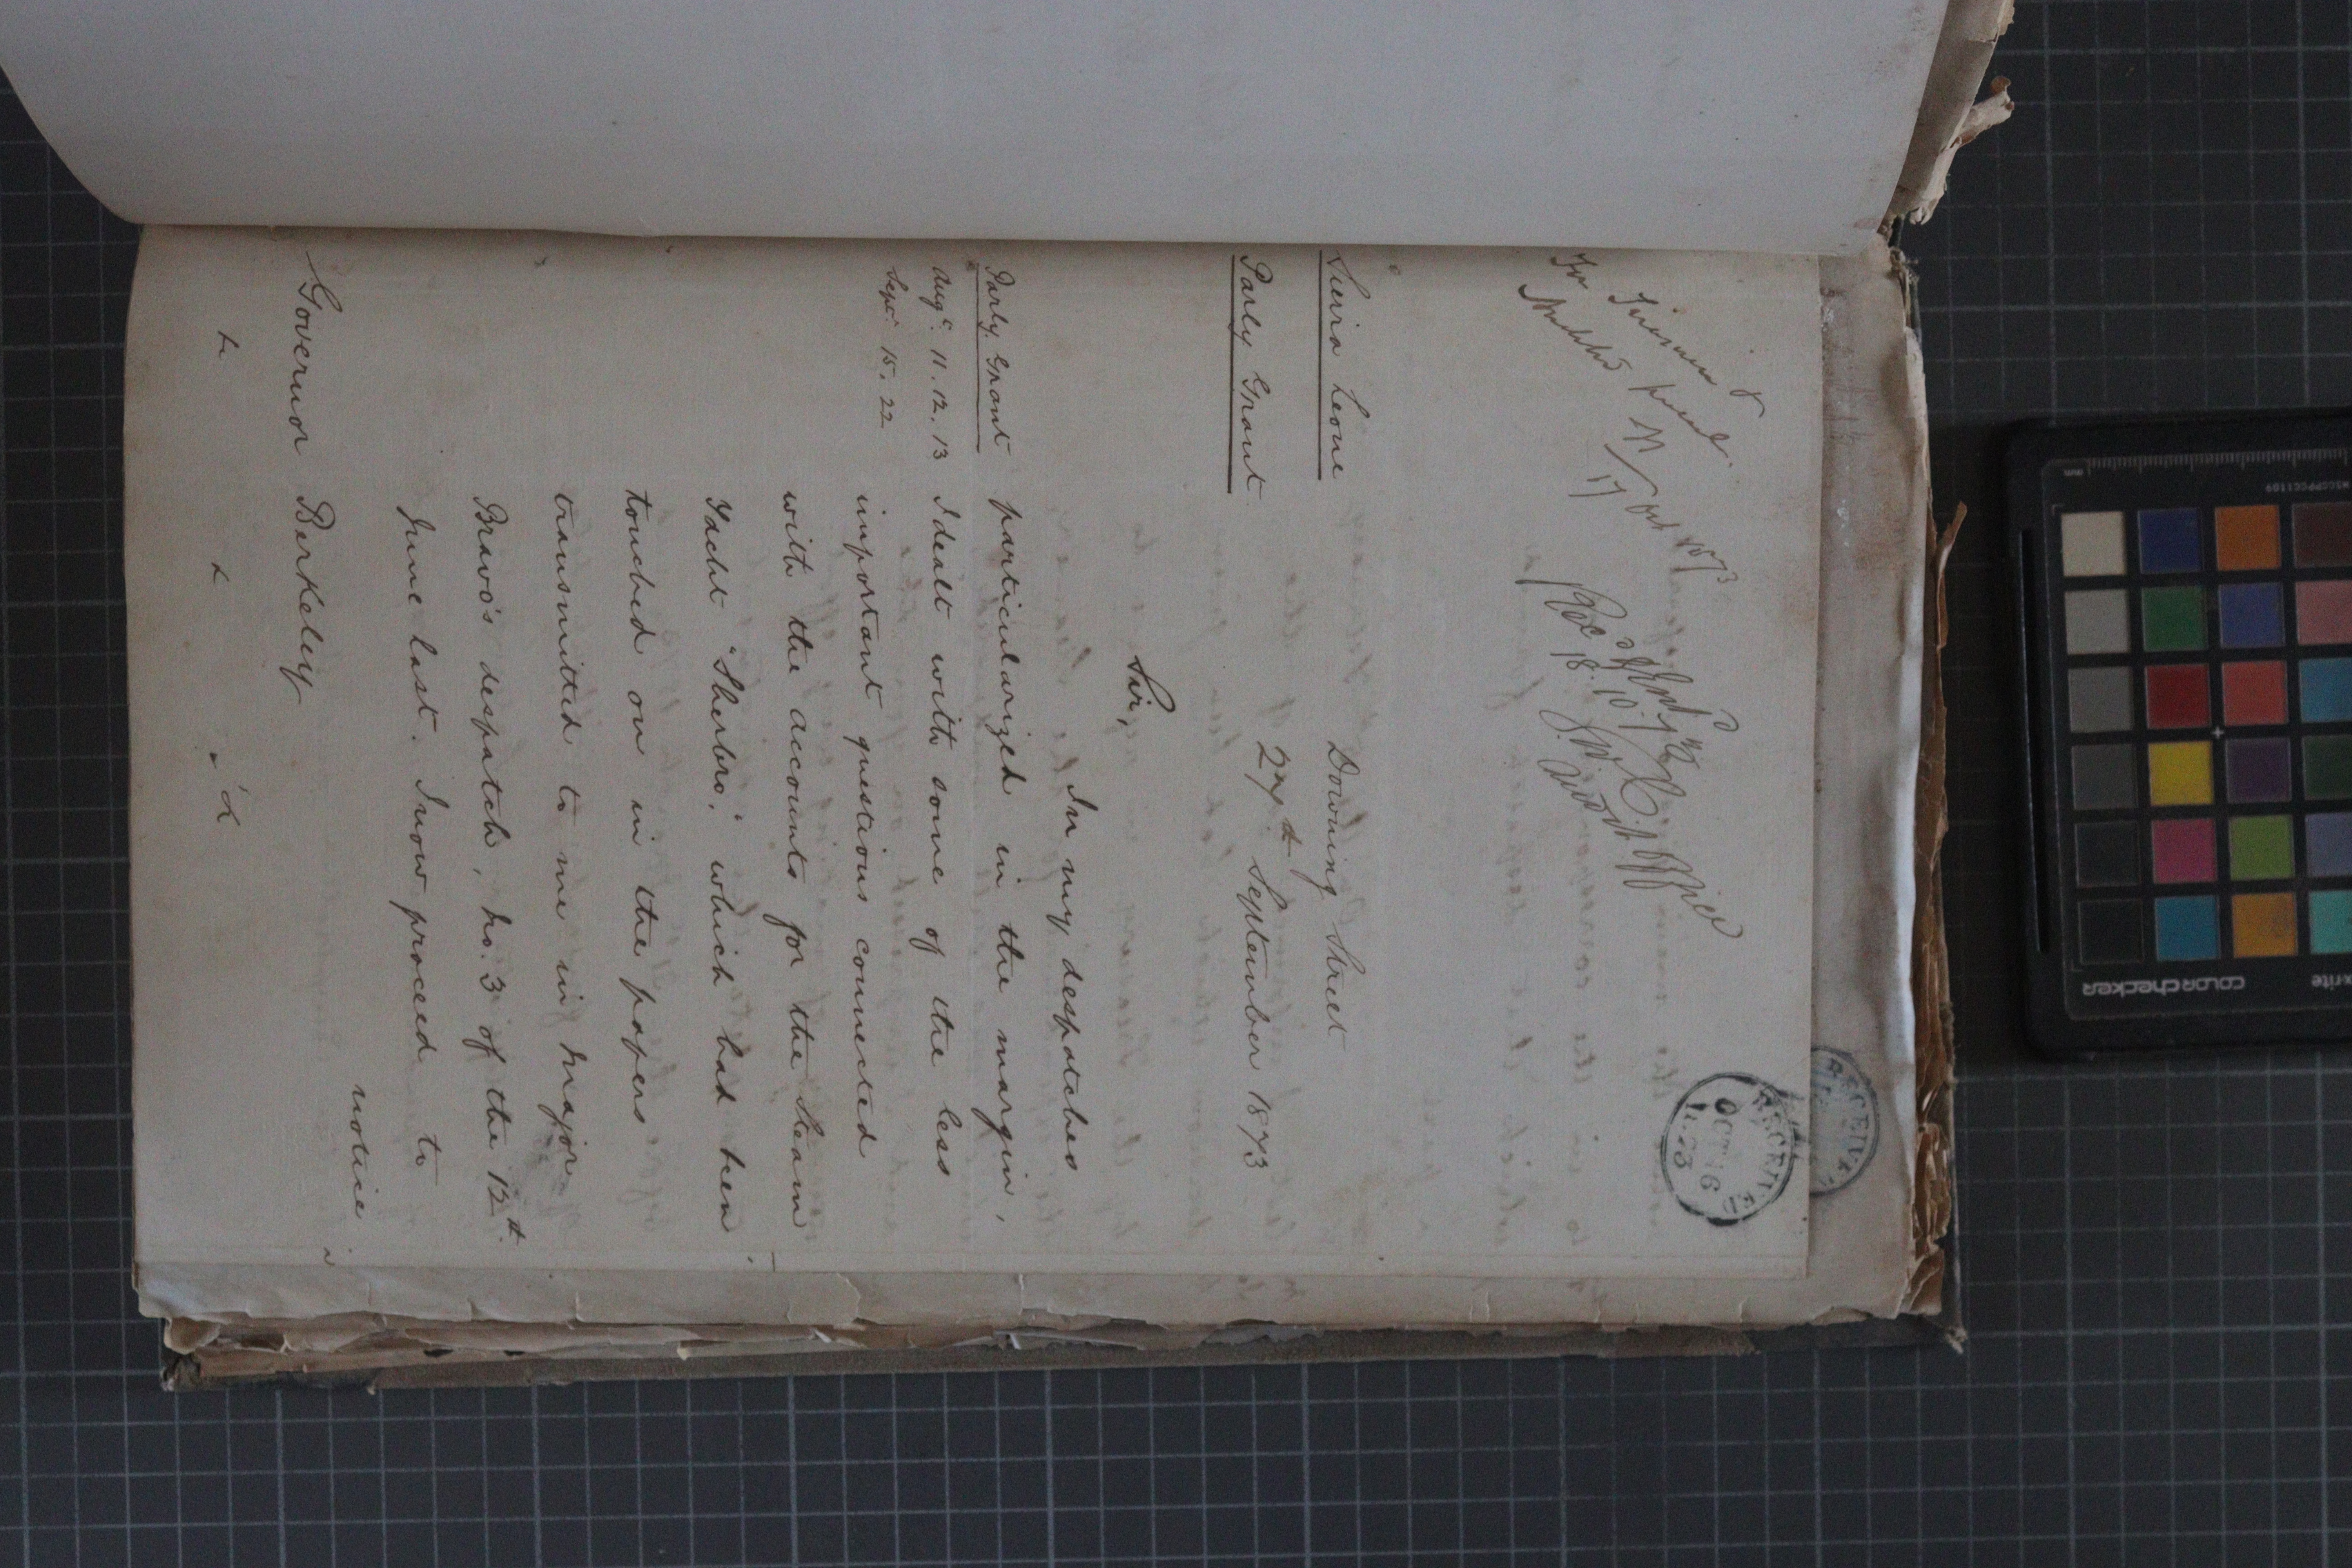 RECEIVED
RECEIVED
OCT 16
1873
17 Oct 1873
18.10.73
Audit Office
Sierra Leone
Downing Street
Parly Grant
27th September 1873
Sir,
In my despatches
Parly Grant
particularized in the margin,
Augt. 11. 12. 13
Sepr. 15. 22
I dealt with some of the less
important questions connected
with the accounts for the Steam
Yacht "Sherbro," which had been
touched on in the papers
transmitted to me in Major
Bravo's despatch, No. 3 of the 12th.
June last. I now proceed to
notice
Governor Berkeley
colorchecker
x-rite
MSCCPPCC1109
mm